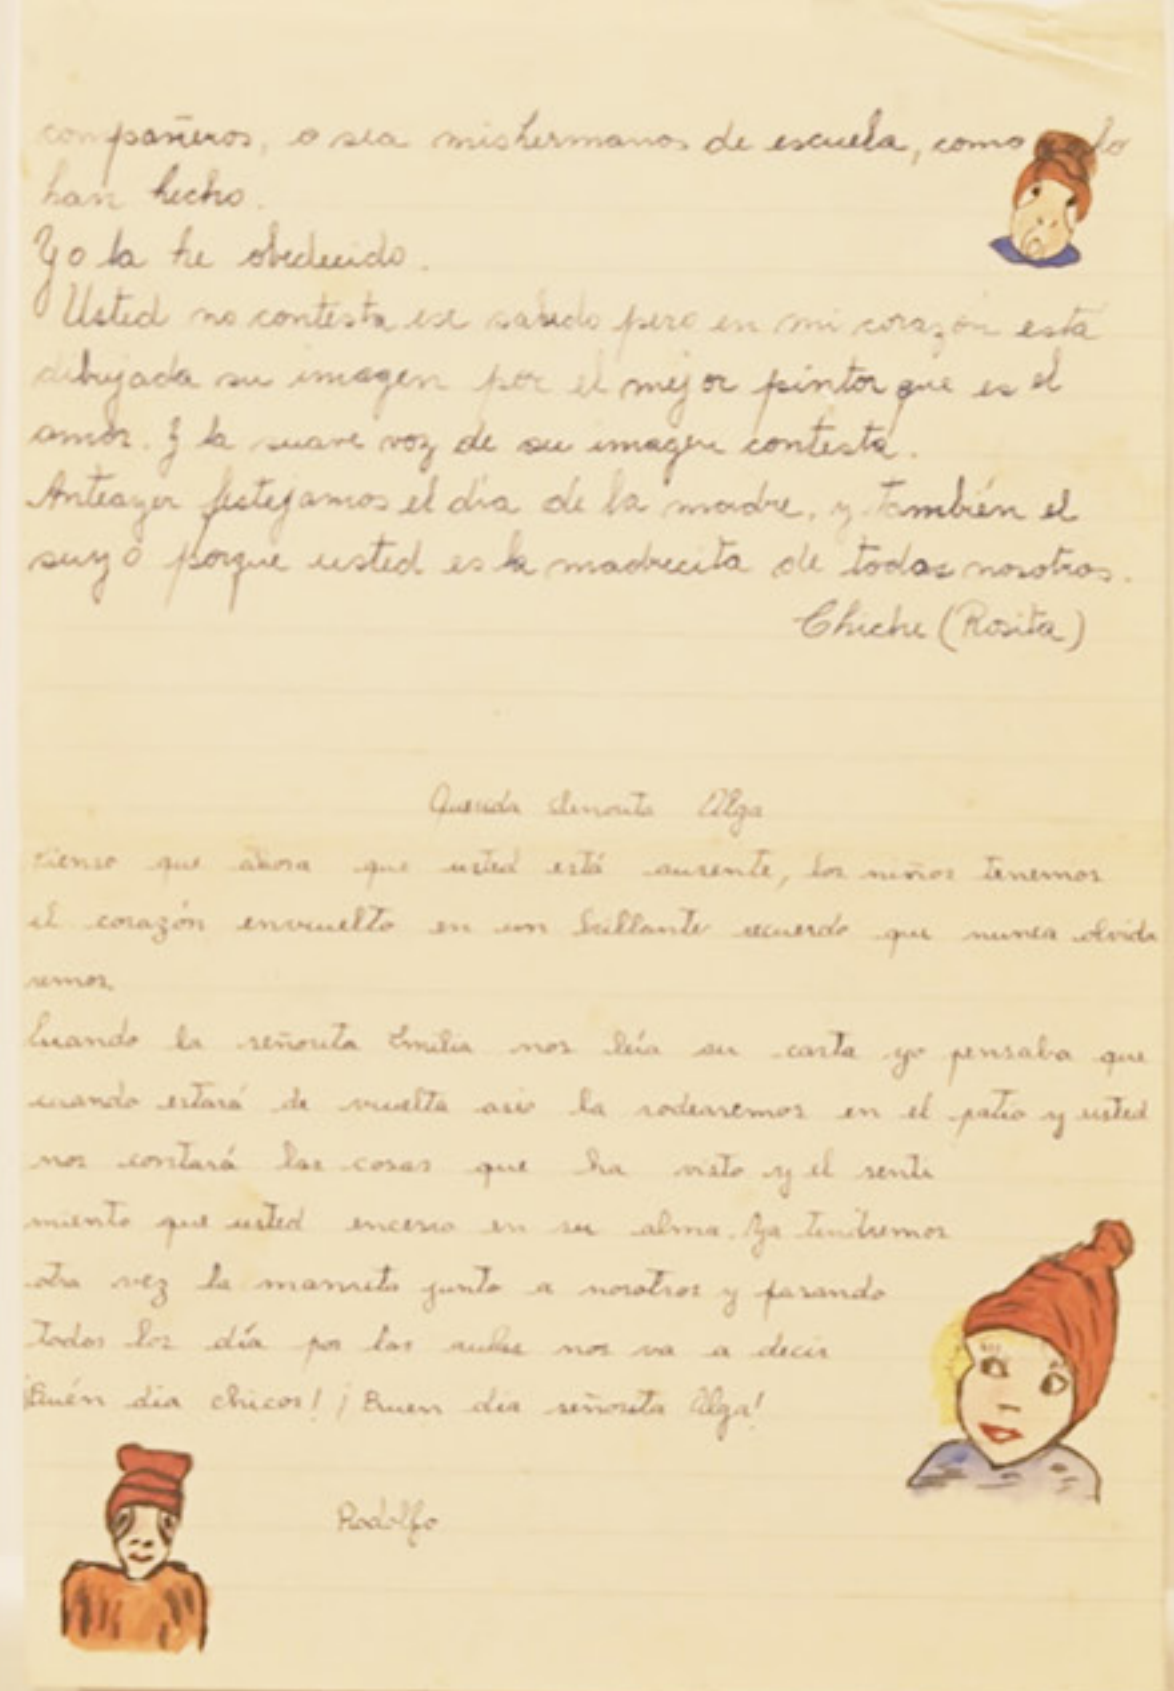 compañeros, o sea mis hermanos de escuela, como lo
han hecho.
Yo la he obedecido.
Usted no contesta ese saludo pero en mi corazón está
dibujada su imagen por el mejor pintor que es el
amor. Y la suave voz de su imagen contesta.
Anteayer festejamos el día de la madre, y también el
suyo porque usted es la madrecita de todos nosotros.
Chiche (Rosita)
Querida Señorita Olga
Pienso que ahora que usted está ausente, los niños tenemos
el corazón envuelto en un brillante recuerdo que nunca olvida
remos.
Cuando la señorita Emilia nos leía su carta yo pensaba que
cuando estará de vuelta asio la rodearemos en el patio y usted
nos contará las cosas que ha visto y el senti
miento que usted encerro en su alma. Ya tendremos
otra vez la mamita junto a nosotros y pasando
todos los día por las aulas nos va a decir
¡Buén dia chicos! ¡Buen dia señorita Olga!
Rodolfo